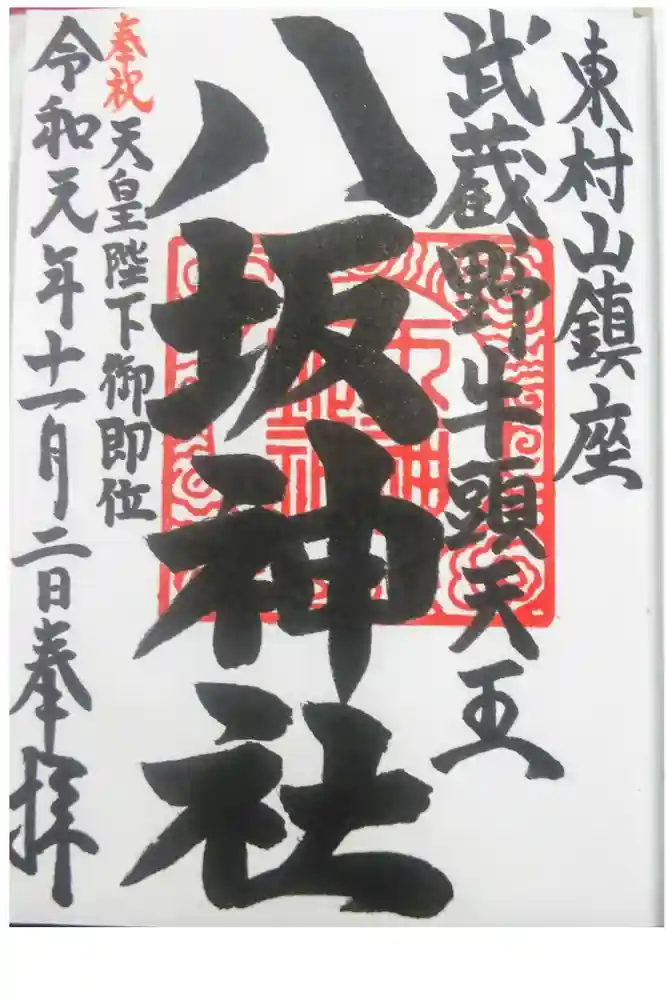 東村山鎮座
武蔵野牛頭天王
八坂神社
奉祝
天皇陛下御即位
令和元年十一月二日奉拝